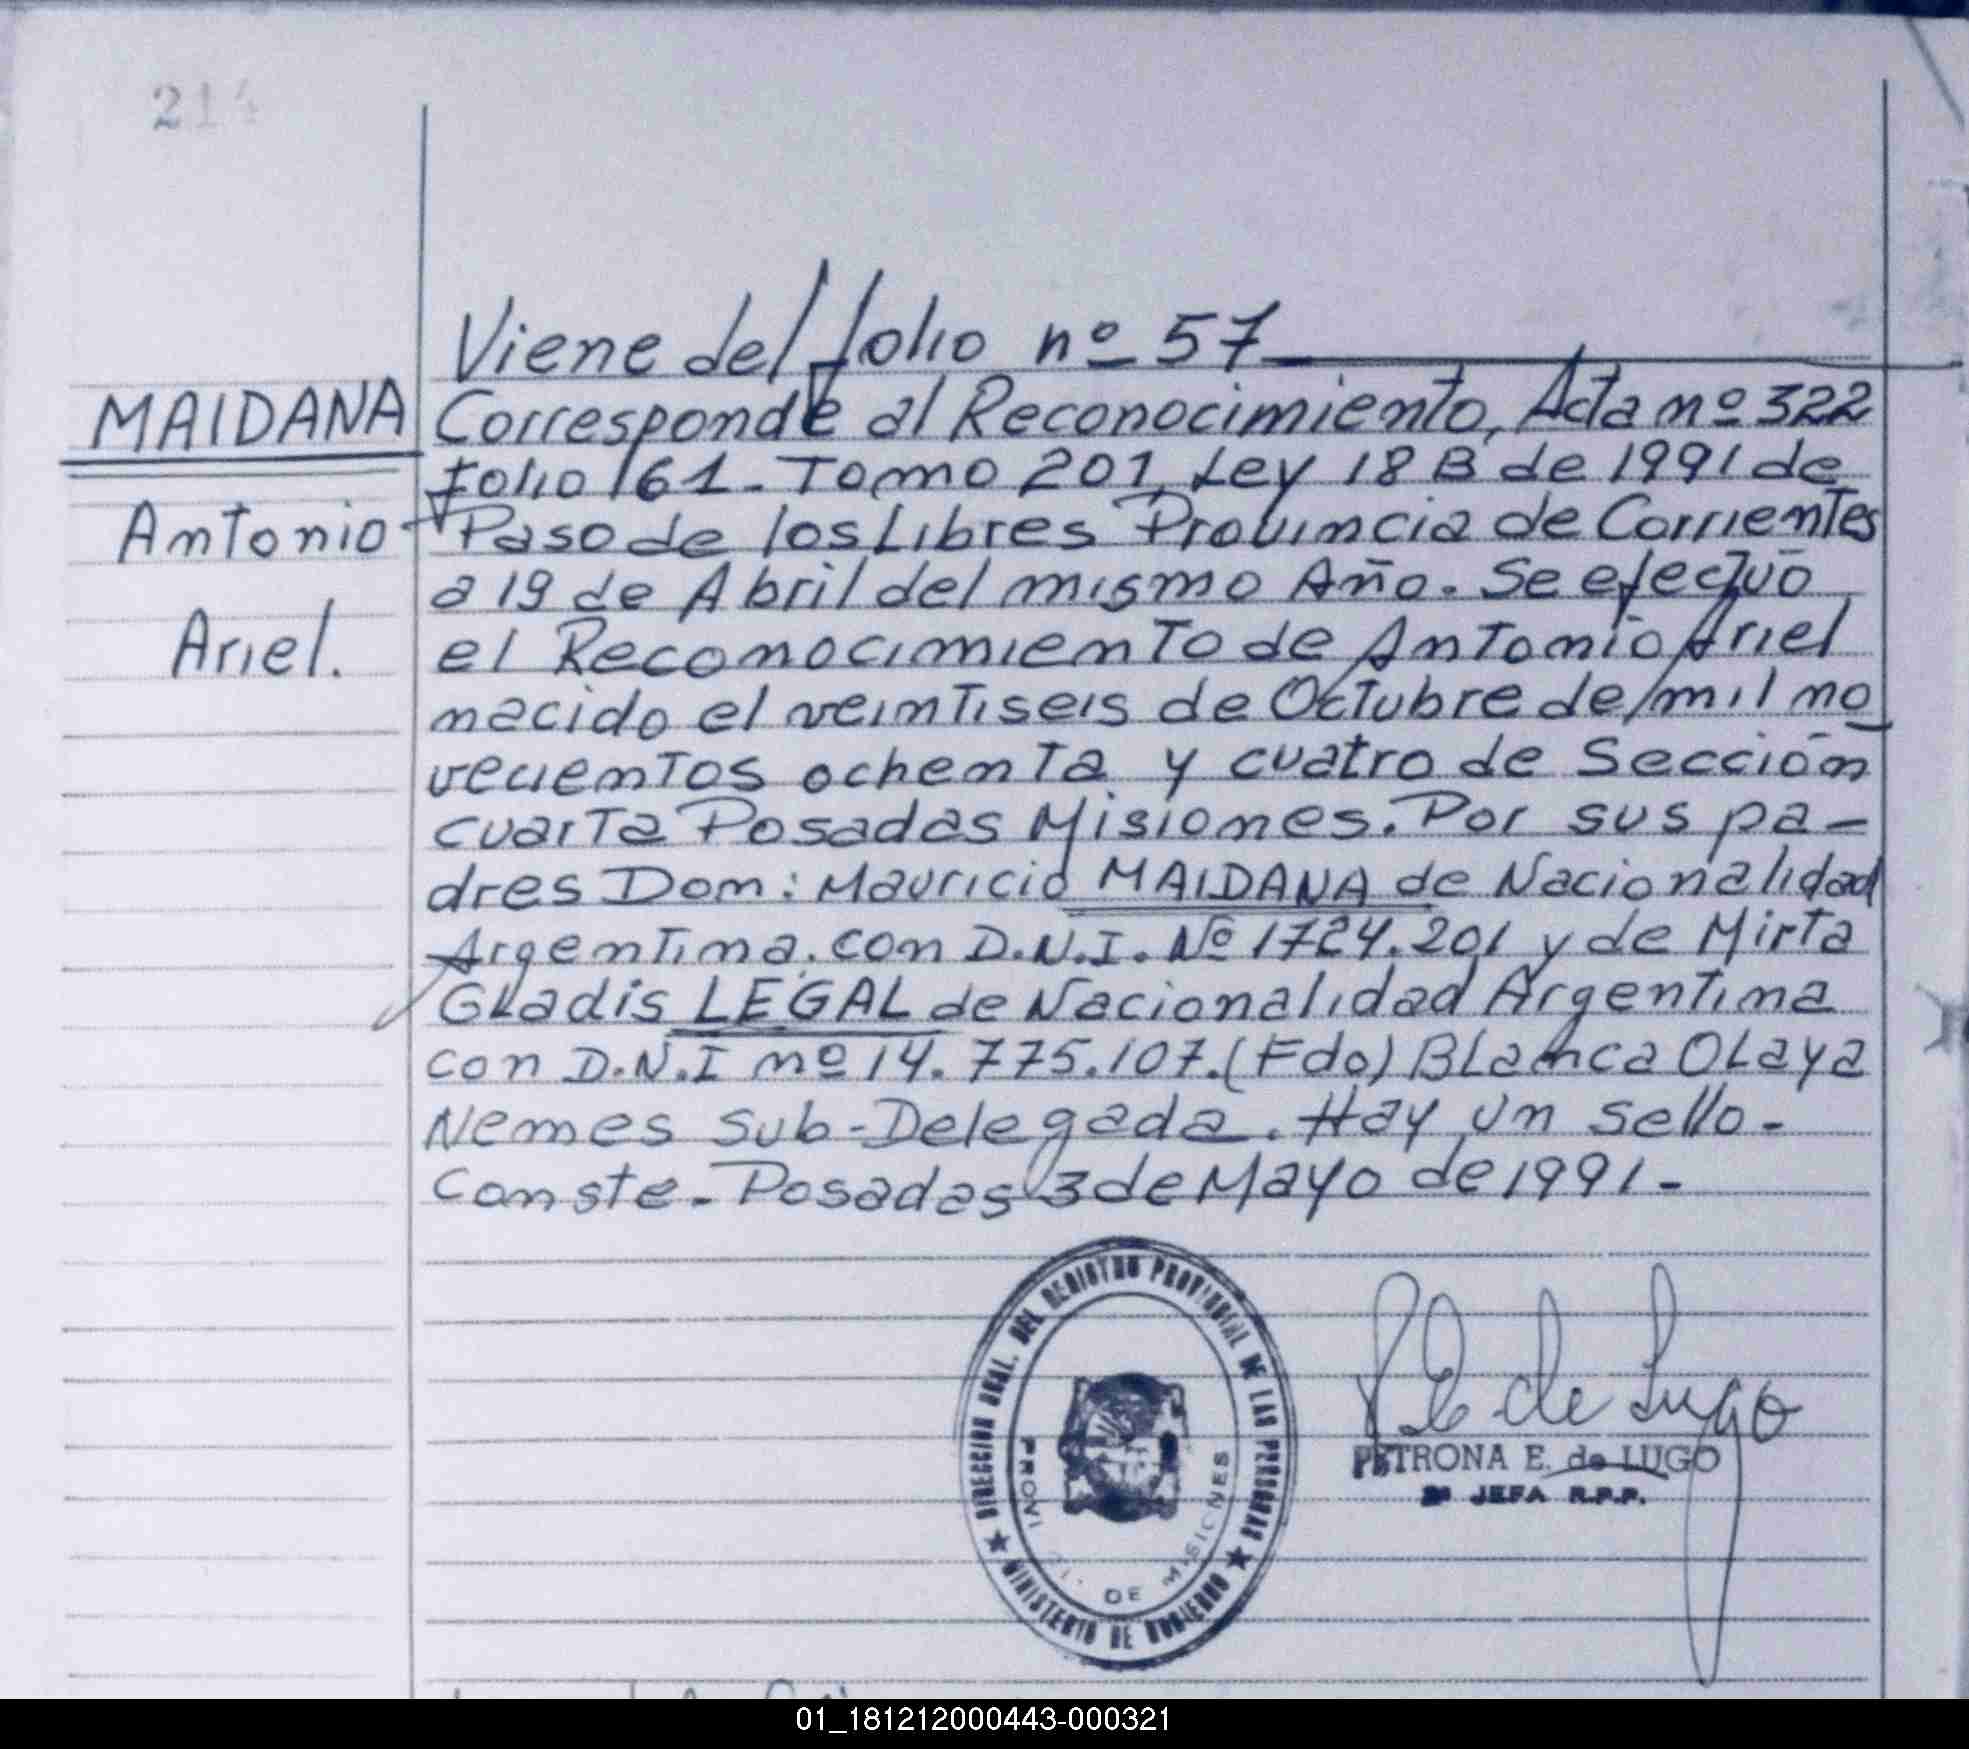 21
Viene del folio nº 57
MAIDANA
Antonio
Ariel.
Corresponde al Reconocimiento, Acta nº 322
folio 161. Tomo 201, Ley 18 B de 1991 de
Paso de los Libres Provincia de Corrientes
a 19 de Abril del mismo Año. Se efectuó
el Reconocimiento de Antonio Ariel
nacido el veintiseis de Octubre de mil no
vecientos ochenta y cuatro de Sección
cuarta Posadas Misiones. Por sus pa-
dres Dom: Mauricio MAIDANA de Nacionalidad
Argentina. con D.N.I. Nº 1724.201 y de Mirta
GLadis LEGAL de Nacionalidad Argentina
con D.N.I nº 14.775.107. (Fdo) BLanca OLaya
Nemes Sub-Delegada. Hay un sello-
Conste. Posadas 3 de Mayo de 1991-
DIRECCION GRAL. DEL REGISTRO PROVINCIAL DE LAS PERSONAS
MINISTERIO DE GOBIERNO
DE MISIONES
P E de Lugo
PETRONA E. de LUGO
JEFA R.P.P.
01_181212000443-000321